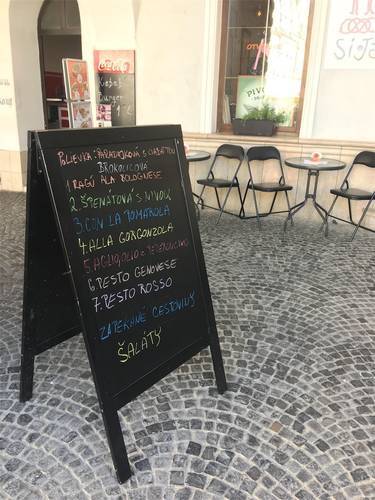 POLIEVKA: PARADAJKOVÁ S CIABATTOU
BROKOLICOVÁ
1 RAGÚ ALA BOLOGNESE
2. ŠPENÁTOVÁ S NIVOU
3. CON LA POMAROLA
4. ALLA GORGONZOLA
5. AGLIO, OLIO e PEPERONCINO
6. PESTO GENOVESE
7. PESTO ROSSO
ZAPEKANÉ CESTOVINY
ŠALÁTY
Burger
PIVO